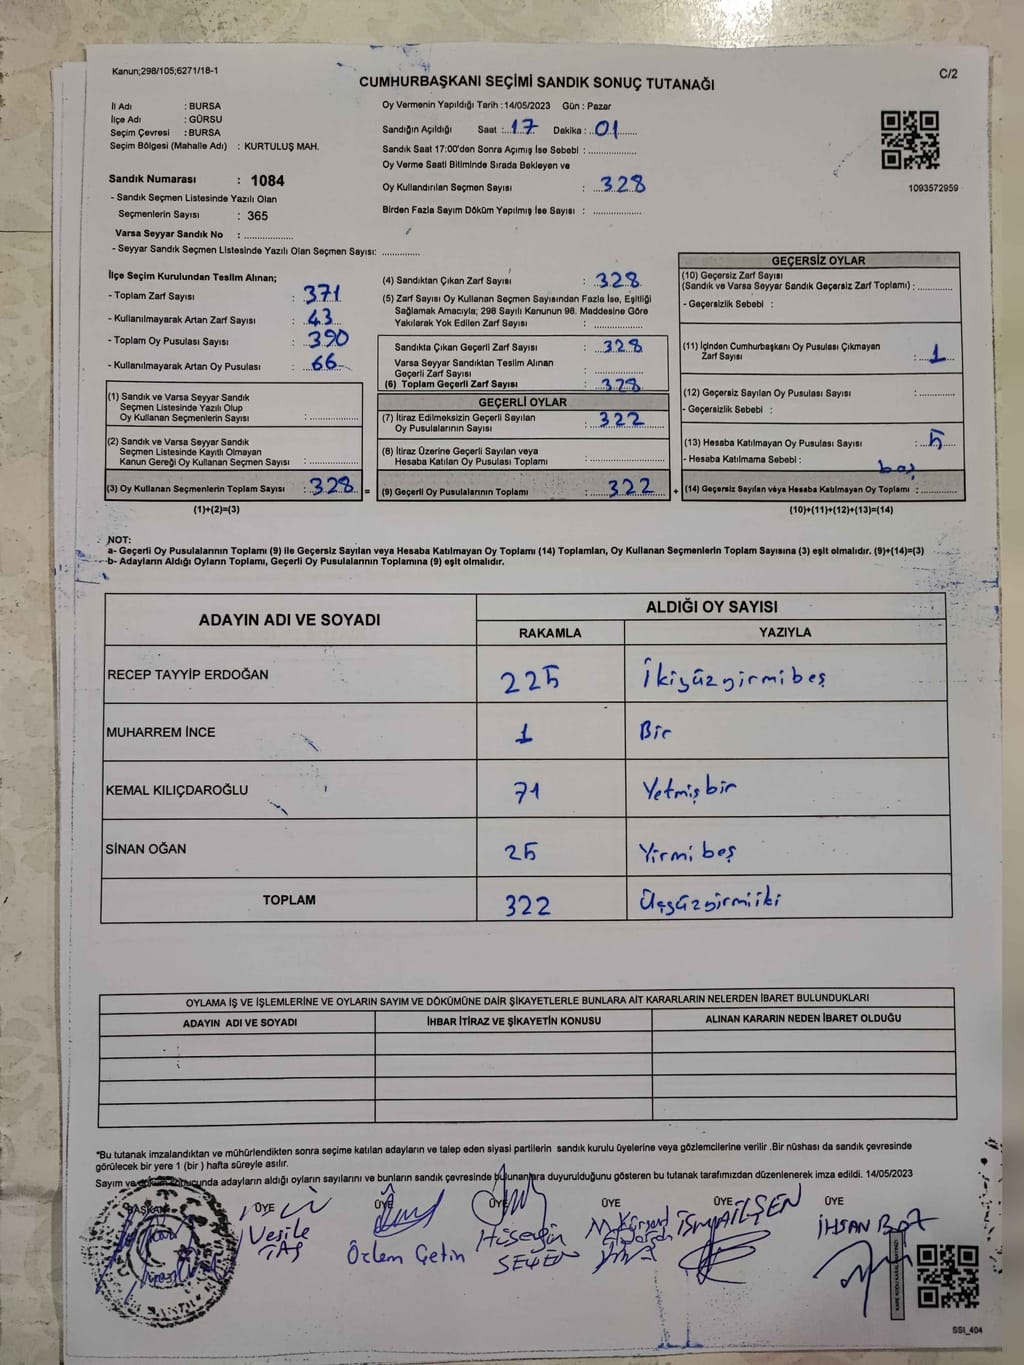 Kanun;298/105;6271/18-1
C/2
CUMHURBAŞKANI SEÇİMİ SANDIK SONUÇ TUTANAĞI
İl Adı : BURSA
İlçe Adı : GÜRSU
Seçim Çevresi : BURSA
Seçim Bölgesi (Mahalle Adı) : KURTULUŞ MAH.
Sandık Numarası : 1084
- Sandık Seçmen Listesinde Yazılı Olan
Seçmenlerin Sayısı : 365
Varsa Seyyar Sandık No : ..................
- Seyyar Sandık Seçmen Listesinde Yazılı Olan Seçmen Sayısı: ..............
Oy Vermenin Yapıldığı Tarih :14/05/2023 Gün : Pazar
Sandığın Açıldığı Saat :..17.. Dakika :..01......
Sandık Saat 17:00'den Sonra Açımış İse Sebebi : ..................
Oy Verme Saati Bitiminde Sırada Bekleyen ve
Oy Kullandırılan Seçmen Sayısı : ...328
Birden Fazla Sayım Döküm Yapılmış İse Sayısı : ..................
1093572959
İlçe Seçim Kurulundan Teslim Alınan;
- Toplam Zarf Sayısı : 371
- Kullanılmayarak Artan Zarf Sayısı : 43
- Toplam Oy Pusulası Sayısı : 390
- Kullanılmayarak Artan Oy Pusulası : 66
(1) Sandık ve Varsa Seyyar Sandık
Seçmen Listesinde Yazılı Olup
Oy Kullanan Seçmenlerin Sayısı : ..................
(2) Sandık ve Varsa Seyyar Sandık
Seçmen Listesinde Kayıtlı Olmayan
Kanun Gereği Oy Kullanan Seçmen Sayısı : ..................
(3) Oy Kullanan Seçmenlerin Toplam Sayısı : 328 =
(1)+(2)=(3)
(4) Sandıktan Çıkan Zarf Sayısı : 328
(5) Zarf Sayısı Oy Kullanan Seçmen Sayısından Fazla İse, Eşitliği
Sağlamak Amacıyla; 298 Sayılı Kanunun 98. Maddesine Göre
Yakılarak Yok Edilen Zarf Sayısı : ..................
Sandıkta Çıkan Geçerli Zarf Sayısı : 328
Varsa Seyyar Sandıktan Teslim Alınan
Geçerli Zarf Sayısı : ..................
(6) Toplam Geçerli Zarf Sayısı : 328
GEÇERLİ OYLAR
(7) İtiraz Edilmeksizin Geçerli Sayılan
Oy Pusulalarının Sayısı : 322
(8) İtiraz Üzerine Geçerli Sayılan veya
Hesaba Katılan Oy Pusulası Toplamı : ..................
(9) Geçerli Oy Pusulalarının Toplamı : 322 +
GEÇERSİZ OYLAR
(10) Geçersiz Zarf Sayısı
(Sandık ve Varsa Seyyar Sandık Geçersiz Zarf Toplamı) : ............
- Geçersizlik Sebebi :
(11) İçinden Cumhurbaşkanı Oy Pusulası Çıkmayan
Zarf Sayısı : 1
(12) Geçersiz Sayılan Oy Pusulası Sayısı : ............
- Geçersizlik Sebebi :
(13) Hesaba Katılmayan Oy Pusulası Sayısı : 5
- Hesaba Katılmama Sebebi : boş
(14) Geçersiz Sayılan veya Hesaba Katılmayan Oy Toplamı : ............
(10)+(11)+(12)+(13)=(14)
NOT:
a- Geçerli Oy Pusulalarının Toplamı (9) ile Geçersiz Sayılan veya Hesaba Katılmayan Oy Toplamı (14) Toplamları, Oy Kullanan Seçmenlerin Toplam Sayısına (3) eşit olmalıdır. (9)+(14)=(3)
b- Adayların Aldığı Oyların Toplamı, Geçerli Oy Pusulalarının Toplamına (9) eşit olmalıdır.
ADAYIN ADI VE SOYADI ALDIĞI OY SAYISI
RAKAMLA YAZIYLA
RECEP TAYYİP ERDOĞAN 225 İkiyüzyirmibeş
MUHARREM İNCE 1 Bir
KEMAL KILIÇDAROĞLU 71 Yetmişbir
SİNAN OĞAN 25 Yirmibeş
TOPLAM 322 Üçyüzyirmiiki
OYLAMA İŞ VE İŞLEMLERİNE VE OYLARIN SAYIM VE DÖKÜMÜNE DAİR ŞİKAYETLERLE BUNLARA AİT KARARLARIN NELERDEN İBARET BULUNDUKLARI
ADAYIN ADI VE SOYADI İHBAR İTİRAZ VE ŞİKAYETİN KONUSU ALINAN KARARIN NEDEN İBARET OLDUĞU
*Bu tutanak imzalandıktan ve mühürlendikten sonra seçime katılan adayların ve talep eden siyasi partilerin sandık kurulu üyelerine veya gözlemcilerine verilir .Bir nüshası da sandık çevresinde
görülecek bir yere 1 (bir ) hafta süreyle asılır.
Sayım ve döküm sonucunda adayların aldığı oyların sayılarını ve bunların sandık çevresinde bulunanlara duyurulduğunu gösteren bu tutanak tarafımızdan düzenlenerek imza edildi. 14/05/2023
BAŞKAN ÜYE ÜYE ÜYE ÜYE ÜYE ÜYE
Vesile TAŞ
Özlem Çetin
Hüseyin SEÇEN
İHSAN BAZ
SSI_404